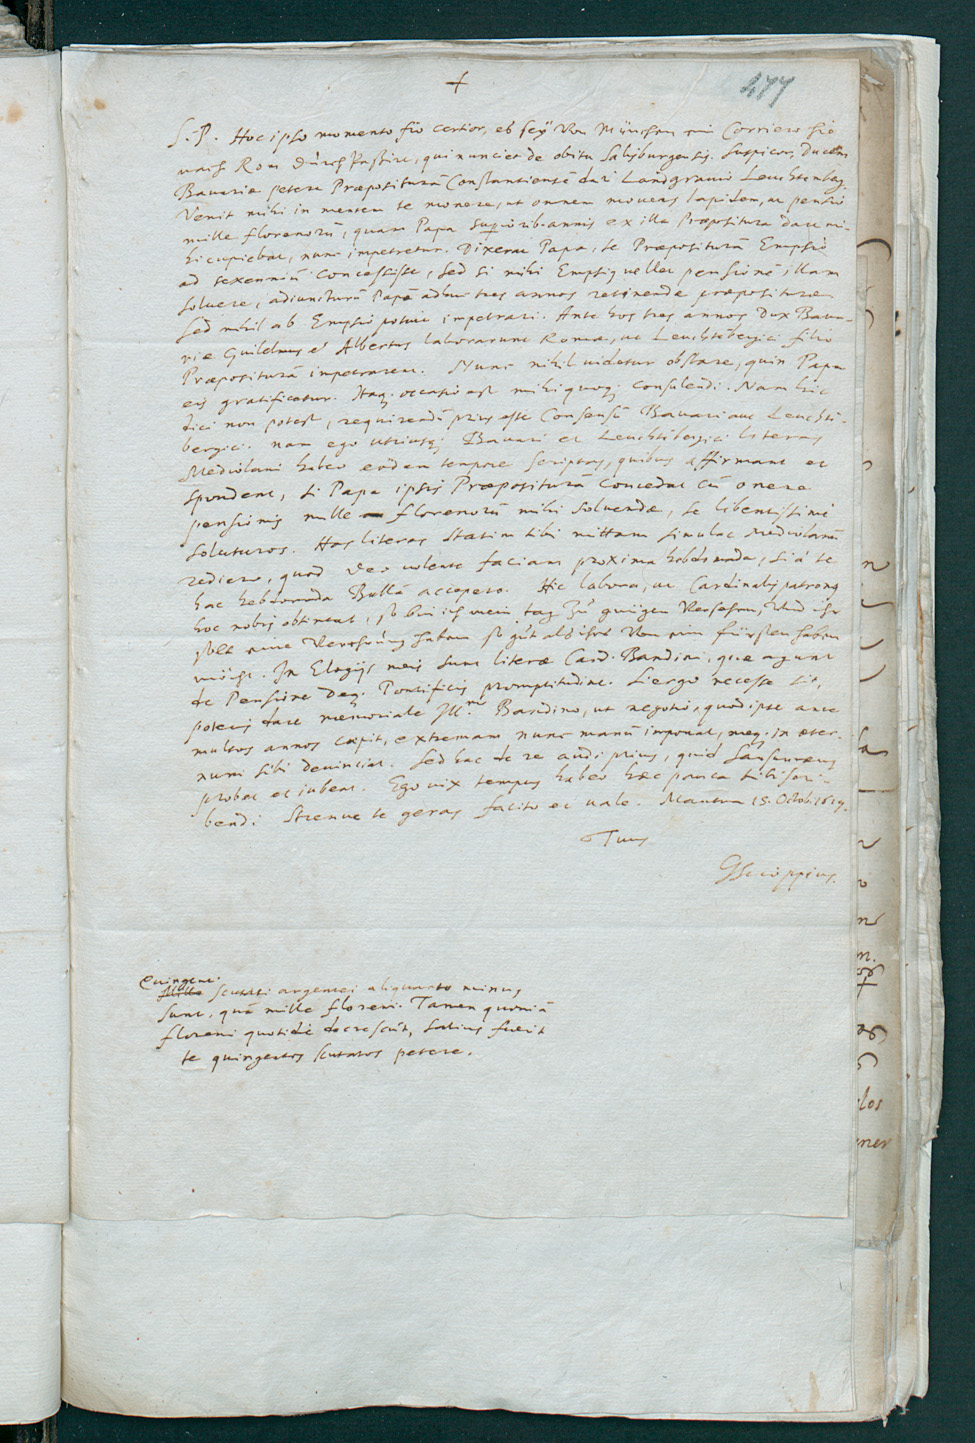 +
477
S. P. Hoc ipso momento fio certior, eß sey von München ein Corriero hie
nach Rom durch passirt, qui nunciet de obitu Salisburgensis. Suspicor, Ducem
Bavariæ petere Præposituram Constantiensē dari Landgravio Leuchtenberg.
Venit mihi in mentem te monere, ut omnem moveas lapidem, ut pensio
mille florenorū, quam Papa superiorib. annis ex illa Præpositura dare mi-
hi cupiebat, nunc impetretur. Dixerat Papa, se Præposituram Empsio
ad sexenniū concessisse, sed si mihi Empsius vellet pensionē illam
solvere, adiuncturū Papā adhuc tres annos retinendæ præposituræ.
Sed nihil ab Empsio potui impetrari. Ante hos tres annos Dux Bava-
riæ Guilelmus et Albertus laborarunt Romæ, ut Leuchtēbergici filio
Præpositurā impetrarent. Nunc nihil videtur obstare, quin Papa
eis gratificetur. Itaq; occasio est mihi quoq; consulendi. Nam hic
dici non potest, requirendū prius esse Consensū Bavari aut Leuchtē-
bergici. nam ego utriusq; Bavari et Leuchtēbergici literas
Mediolani habeo eodem tempore scriptas, quibus affirmant et
spondent, si Papa ipsis Præpositurā concedat cū onere
pensionis mille florenorū mihi solvendæ, se libentissimè
soluturos. Has literas statim tibi mittam simulac Mediolanū
rediero, quod Deo volente faciam proxima hebdomada, si à te
hac hebdomada Bullā accepero. Hic labora, ut Cardinalis patronus
hoc nobis obtineat, so bin ich mein tag zu gnügen versehen, und ihr
solt eine Verehrung haben so gut alß ihrs von eim fürsten haben
möcht. In Elogiis meis sunt literæ Card. Bandini, quæ agunt
de Pensione deq. Pontificis promptitudine. Si ergo necesse sit,
poteris dare memoriale Ill.mo Bandino, ut negotiū, quod ipse ante
multos annos cœpit, extremam nunc manū imponat, meq. in æter-
num sibi devinciat. Sed hac de re audi prius, quid
probet et iubeat. Ego vix tempus habeo hæc pauca tibi scri-
bendi. Strenue te geras facito et vale. Mantua 15. Octob. 1619.
Tuus
GScioppius.
Quingenti
Mille scutati argentei aliquanto minus
sunt, quā mille floreni. Tamen quoniā
floreni quotidie decrescūt, satius fuerit
te quingentos scutatos petere.